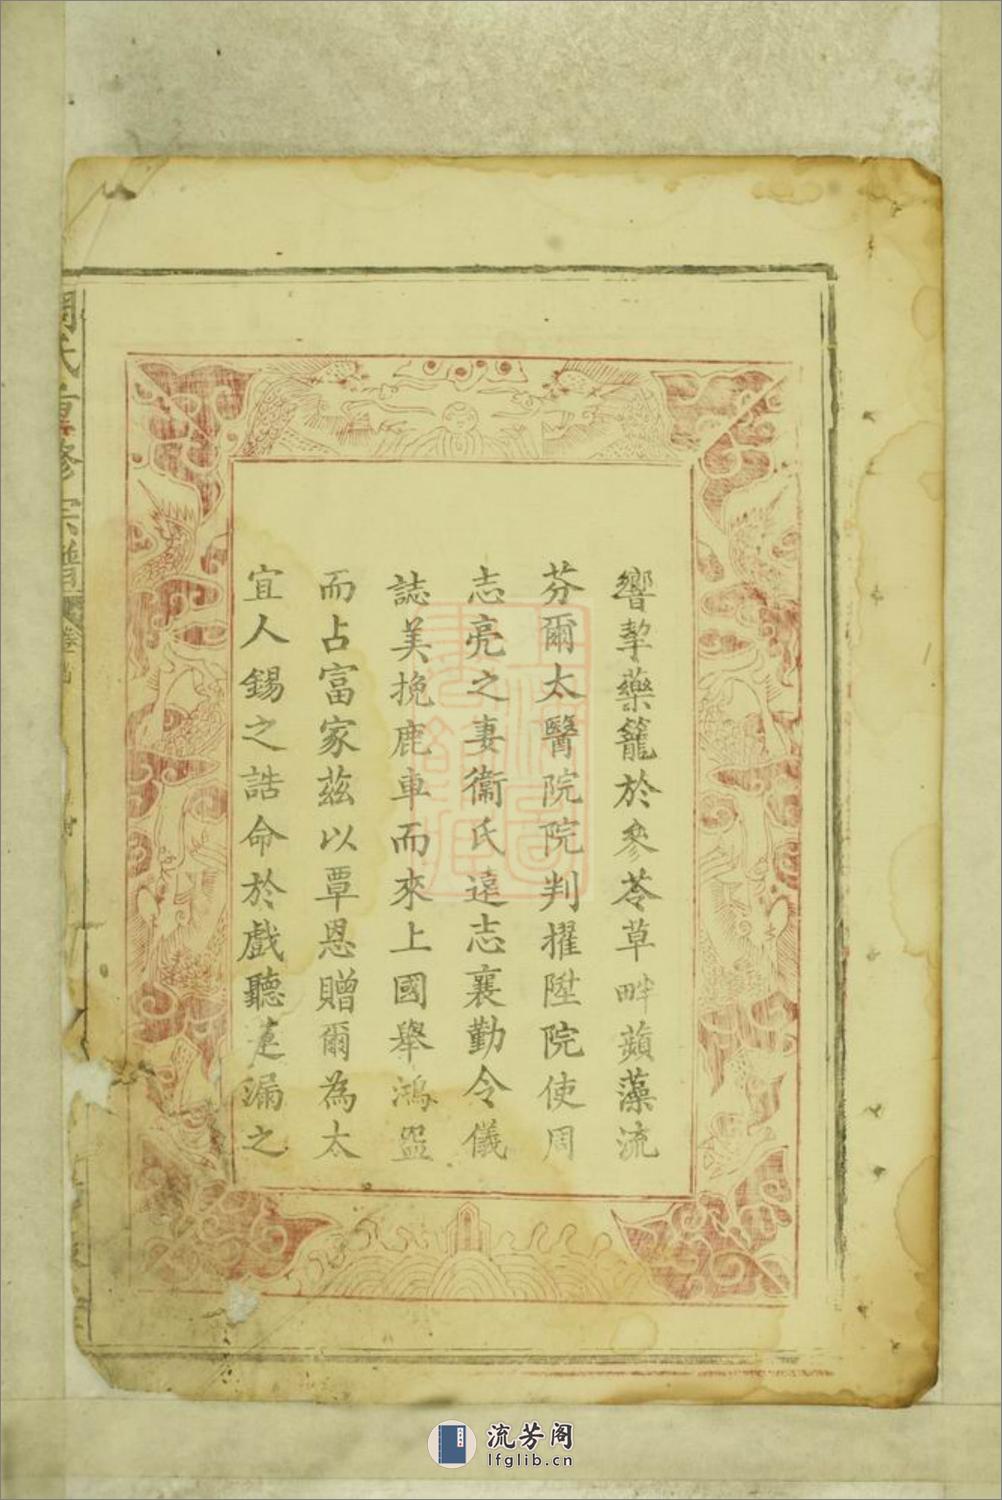 響挈藥籠於參苓草畔蘋藻流
芬爾太醫院院判擢陞院使周
志亮之妻衞氏遠志襄勤令儀
誌美挽鹿車而來上國舉鴻盌
而占富家茲以覃恩贈爾為太
宜人錫之誥命於戲聽蓮漏之
周氏重修宗譜
流芳阁
lfglib.cn